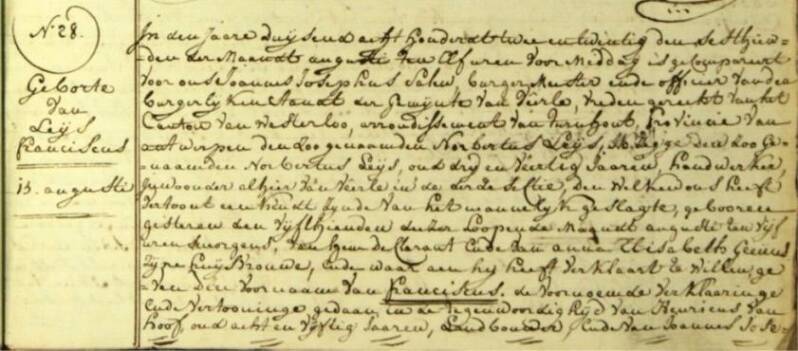 N° 28.
Geborte
Van
Leÿs
franciscus
15. augusti
In den Jaare duÿsend acht honderdt twee en twintig den sesthien-
-den der Maendt augusti ten Elf uren voor Middag is gecompareert
voor ons Joannes Josephus burgermeester ende officier van den
burgerlÿken staadt der gemÿnte van Veirle, vreden gerecht van het
Canton van Westerloo, arrondissement van turnhout, provincie van
antwerpen den zoo genaamden Norbertus Leÿs, den zoo ge-
naamden Norbertus Leÿs, oud drÿ en Veertig Jaaren, handwerker,
Inwoonder alhier van Veirle in de derde sectie, den welken ons heeft
vertoont een kindt zÿnde van het mannelÿk geslagte, gebooren
gisteren den vÿfthienden dezer loopende Maendt augusti ten vÿf
uren smorgens, van hem declarant Ende van anna Elisabeth
zÿne huÿsvrouwe, Ende waar aen hÿ heeft verklaart te willen ge-
-ven den voornaam van franciscus. de voornoemde verklaaringe
Ende vertooninge gedaan in de tegenwoordighÿd van Henricus van
hoof, oud acht en vÿftig Jaaren, Landbouder, Ende van Joannes Jose-